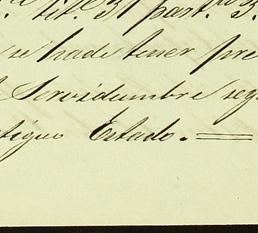 tit. 31 part. 3.
se ha de tener pre
Servidumbre segu
tiguo Estado. =